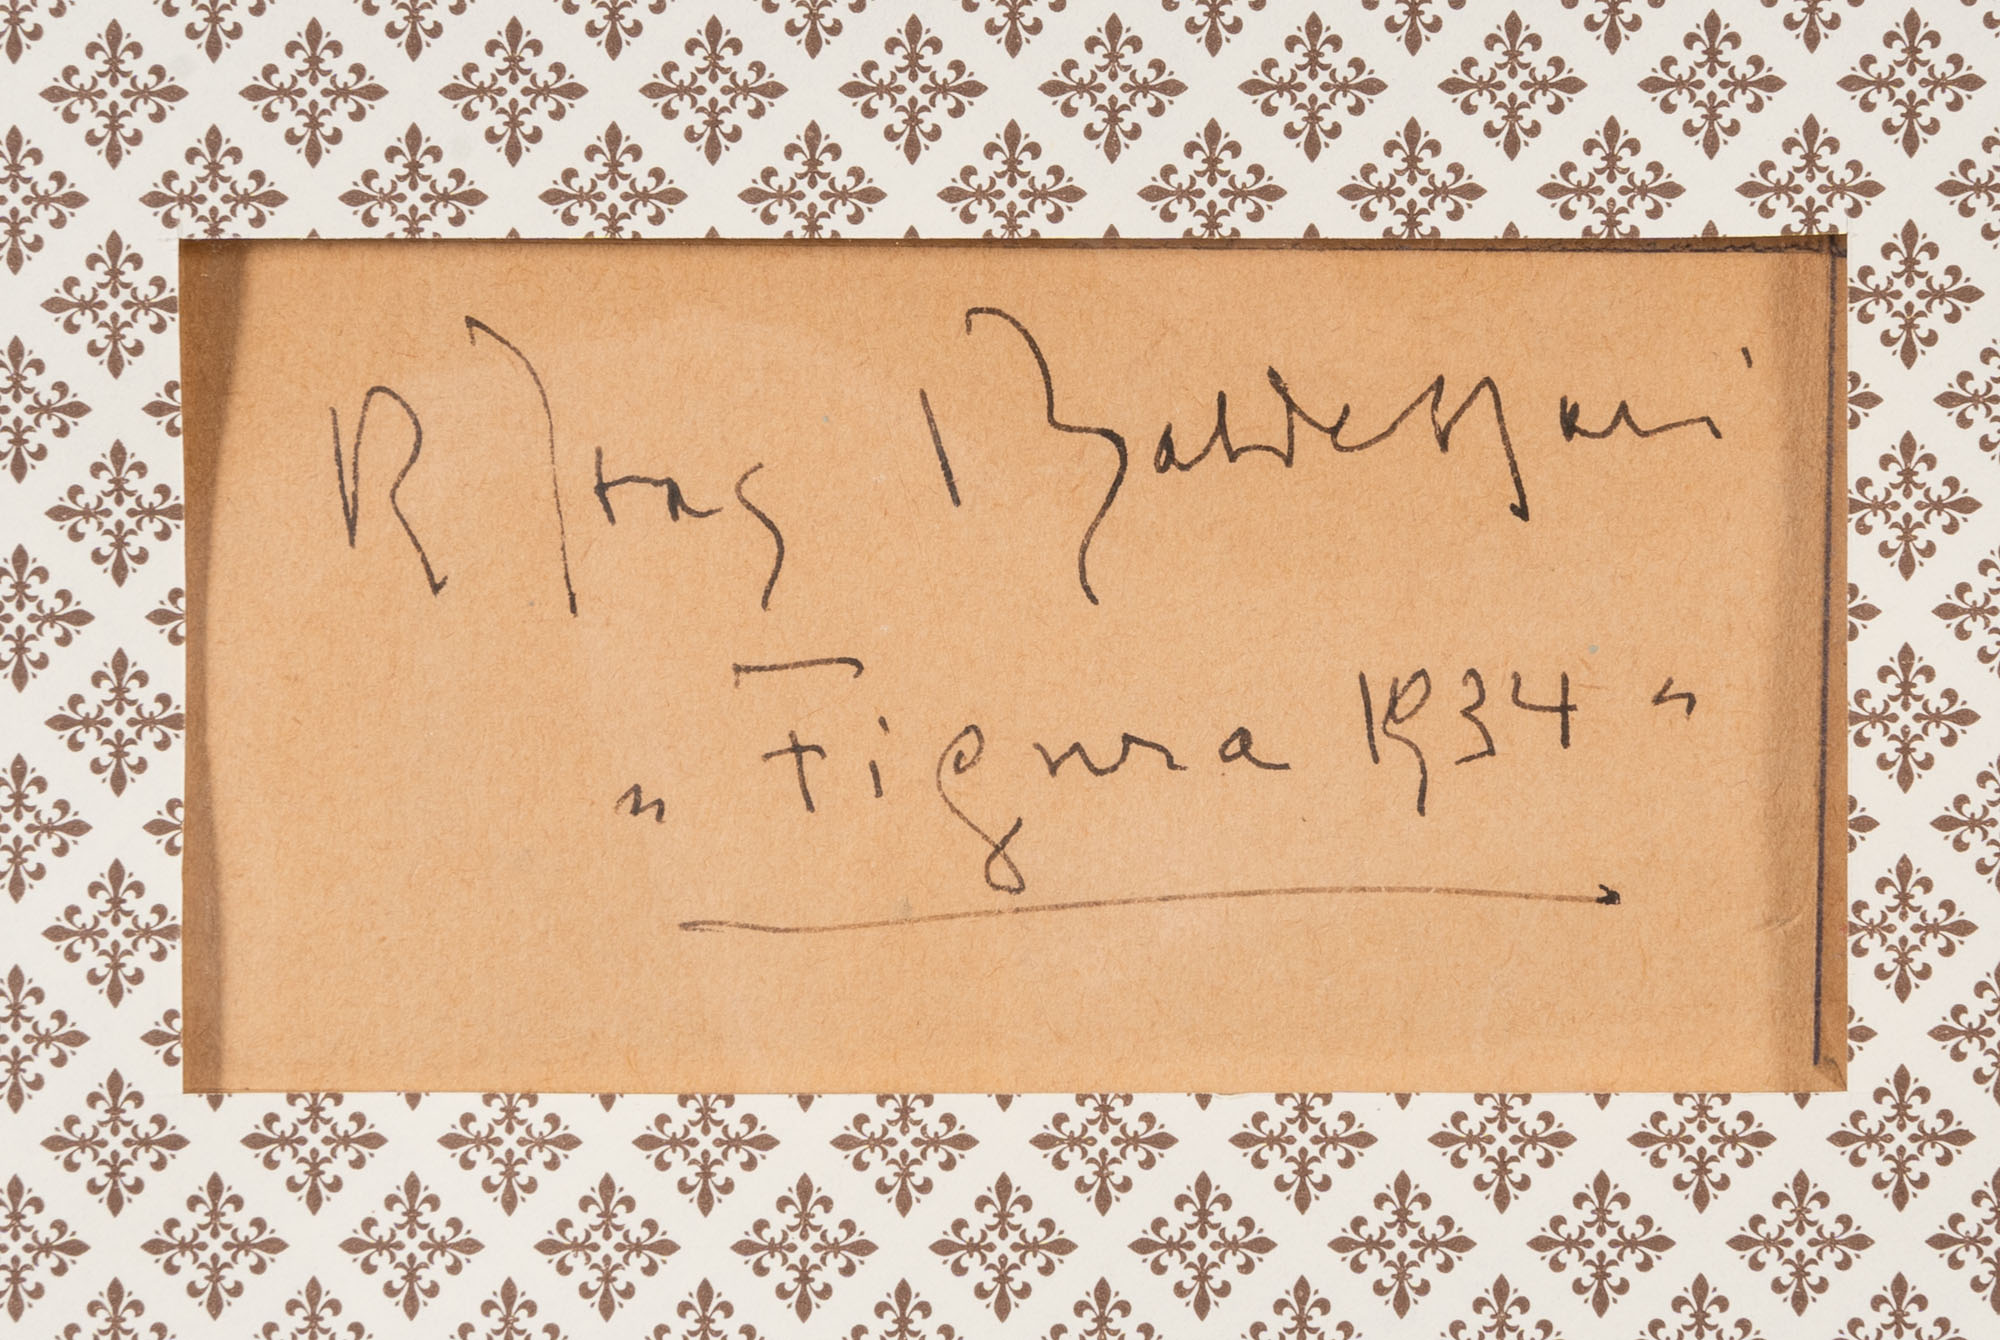 R Iras Baldessari
" Figura 1934 "